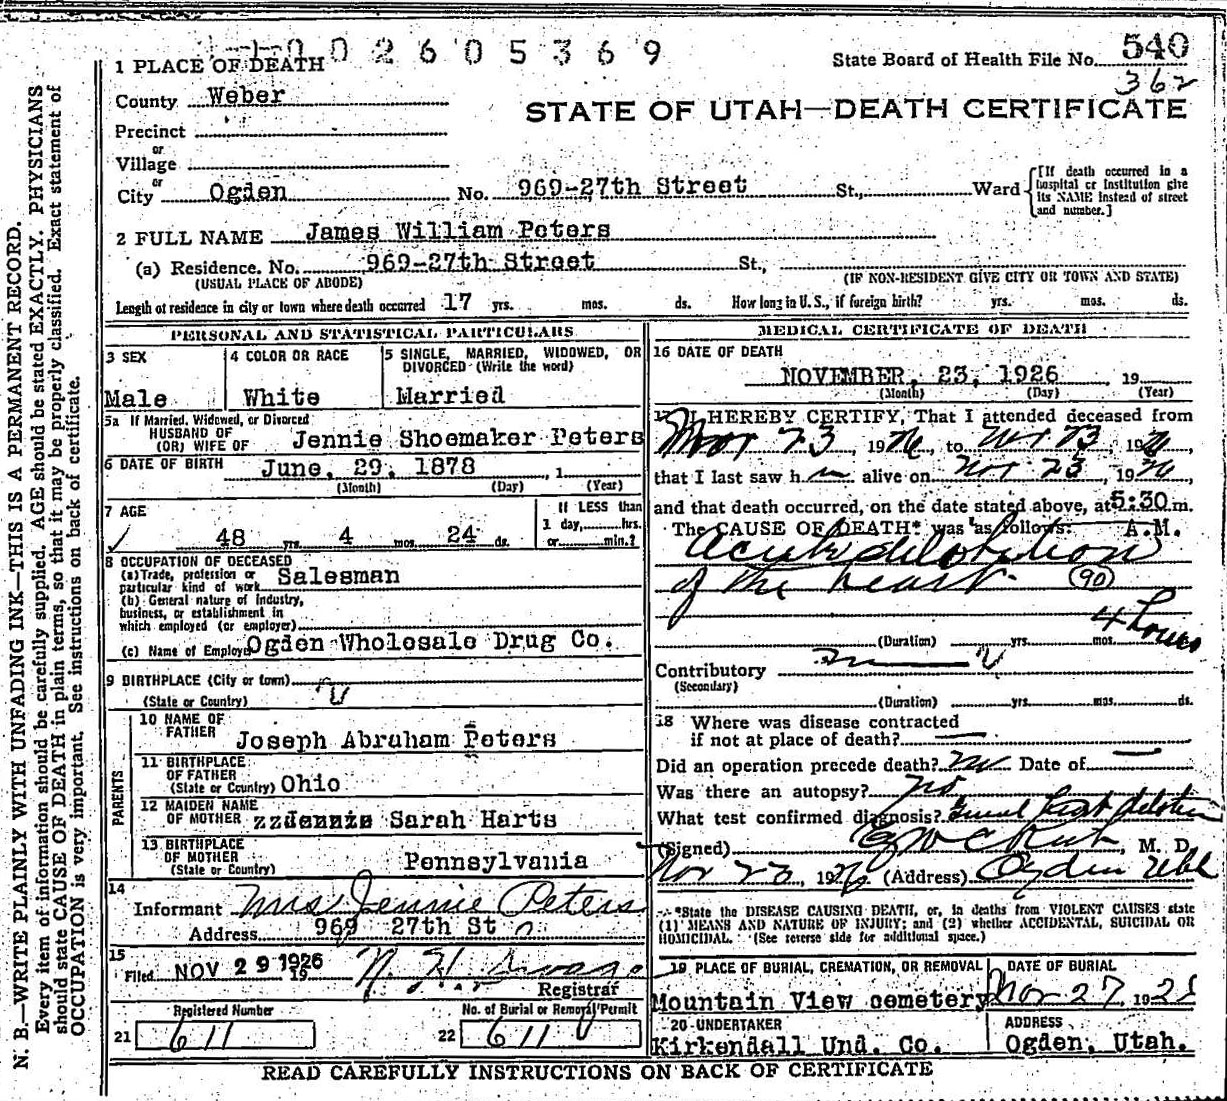 002605369
State Board of Health File No. 540
362
1 PLACE OF DEATH
County Weber
STATE OF UTAH—DEATH CERTIFICATE
Precinct
or
Village
or
City Ogden No. 969-27th Street St., Ward
[If death occurred in a hospital or institution give its NAME instead of street and number.]
2 FULL NAME James William Peters
(a) Residence. No. 969-27th Street St.,
(USUAL PLACE OF ABODE) (IF NON-RESIDENT GIVE CITY OR TOWN AND STATE)
Length of residence in city or town where death occurred 17 yrs. mos. ds. How long in U. S., if foreign birth? yrs. mos. ds.
PERSONAL AND STATISTICAL PARTICULARS
3 SEX
Male
4 COLOR OR RACE
White
5 SINGLE, MARRIED, WIDOWED, OR
DIVORCED (Write the word)
Married
5a If Married, Widowed, or Divorced
HUSBAND OF
(OR) WIFE OF Jennie Shoemaker Peters
6 DATE OF BIRTH June, 29, 1878, 1
(Month) (Day) (Year)
7 AGE
48 yrs. 4 mos. 24 ds.
If LESS than
1 day, hrs.
or min.?
8 OCCUPATION OF DECEASED
(a) Trade, profession or
particular kind of work Salesman
(b) General nature of industry,
business, or establishment in
which employed (or employer)
(c) Name of Employer Ogden Wholesale Drug Co.
9 BIRTHPLACE (City or town)
(State or Country)
PARENTS
10 NAME OF
FATHER Joseph Abraham Peters
11 BIRTHPLACE
OF FATHER
(State or Country) Ohio
12 MAIDEN NAME
OF MOTHER zzJennie Sarah Harts
13 BIRTHPLACE
OF MOTHER
(State or Country) Pennsylvania
14
Informant Mrs Jennie Peters
Address 969 27th St
15
Filed NOV 29 1926 19
Registrar
Registered Number
21 611
No. of Burial or Removal Permit
22 611
MEDICAL CERTIFICATE OF DEATH
16 DATE OF DEATH
NOVEMBER, 23, 1926, 19
(Month) (Day) (Year)
17 I HEREBY CERTIFY, That I attended deceased from
Nov 23, 1926, to Nov 23, 1926,
that I last saw h im alive on Nov 23, 1926,
and that death occurred, on the date stated above, at 5:30 m.
The CAUSE OF DEATH* was as follows: A.M.
Acute dilatation
of the heart. 90
4 hours
(Duration) yrs. mos.
Contributory
(Secondary)
(Duration) yrs. mos. ds.
18 Where was disease contracted
if not at place of death?
Did an operation precede death? no Date of
Was there an autopsy? no
What test confirmed diagnosis?
(Signed) , M. D.
Nov 23, 1926 (Address) Ogden Utah
*State the DISEASE CAUSING DEATH, or, in deaths from VIOLENT CAUSES state
(1) MEANS AND NATURE OF INJURY; and (2) whether ACCIDENTAL, SUICIDAL OR
HOMICIDAL. (See reverse side for additional space.)
19 PLACE OF BURIAL, CREMATION, OR REMOVAL
Mountain View cemetery
DATE OF BURIAL
Nov 27, 192
20 UNDERTAKER
Kirkendall Und. Co.
ADDRESS
Ogden, Utah.
READ CAREFULLY INSTRUCTIONS ON BACK OF CERTIFICATE
N. B.—WRITE PLAINLY WITH UNFADING INK—THIS IS A PERMANENT RECORD.
Every item of information should be carefully supplied. AGE should be stated EXACTLY. PHYSICIANS
should state CAUSE OF DEATH in plain terms, so that it may be properly classified. Exact statement of
OCCUPATION is very important. See instructions on back of certificate.